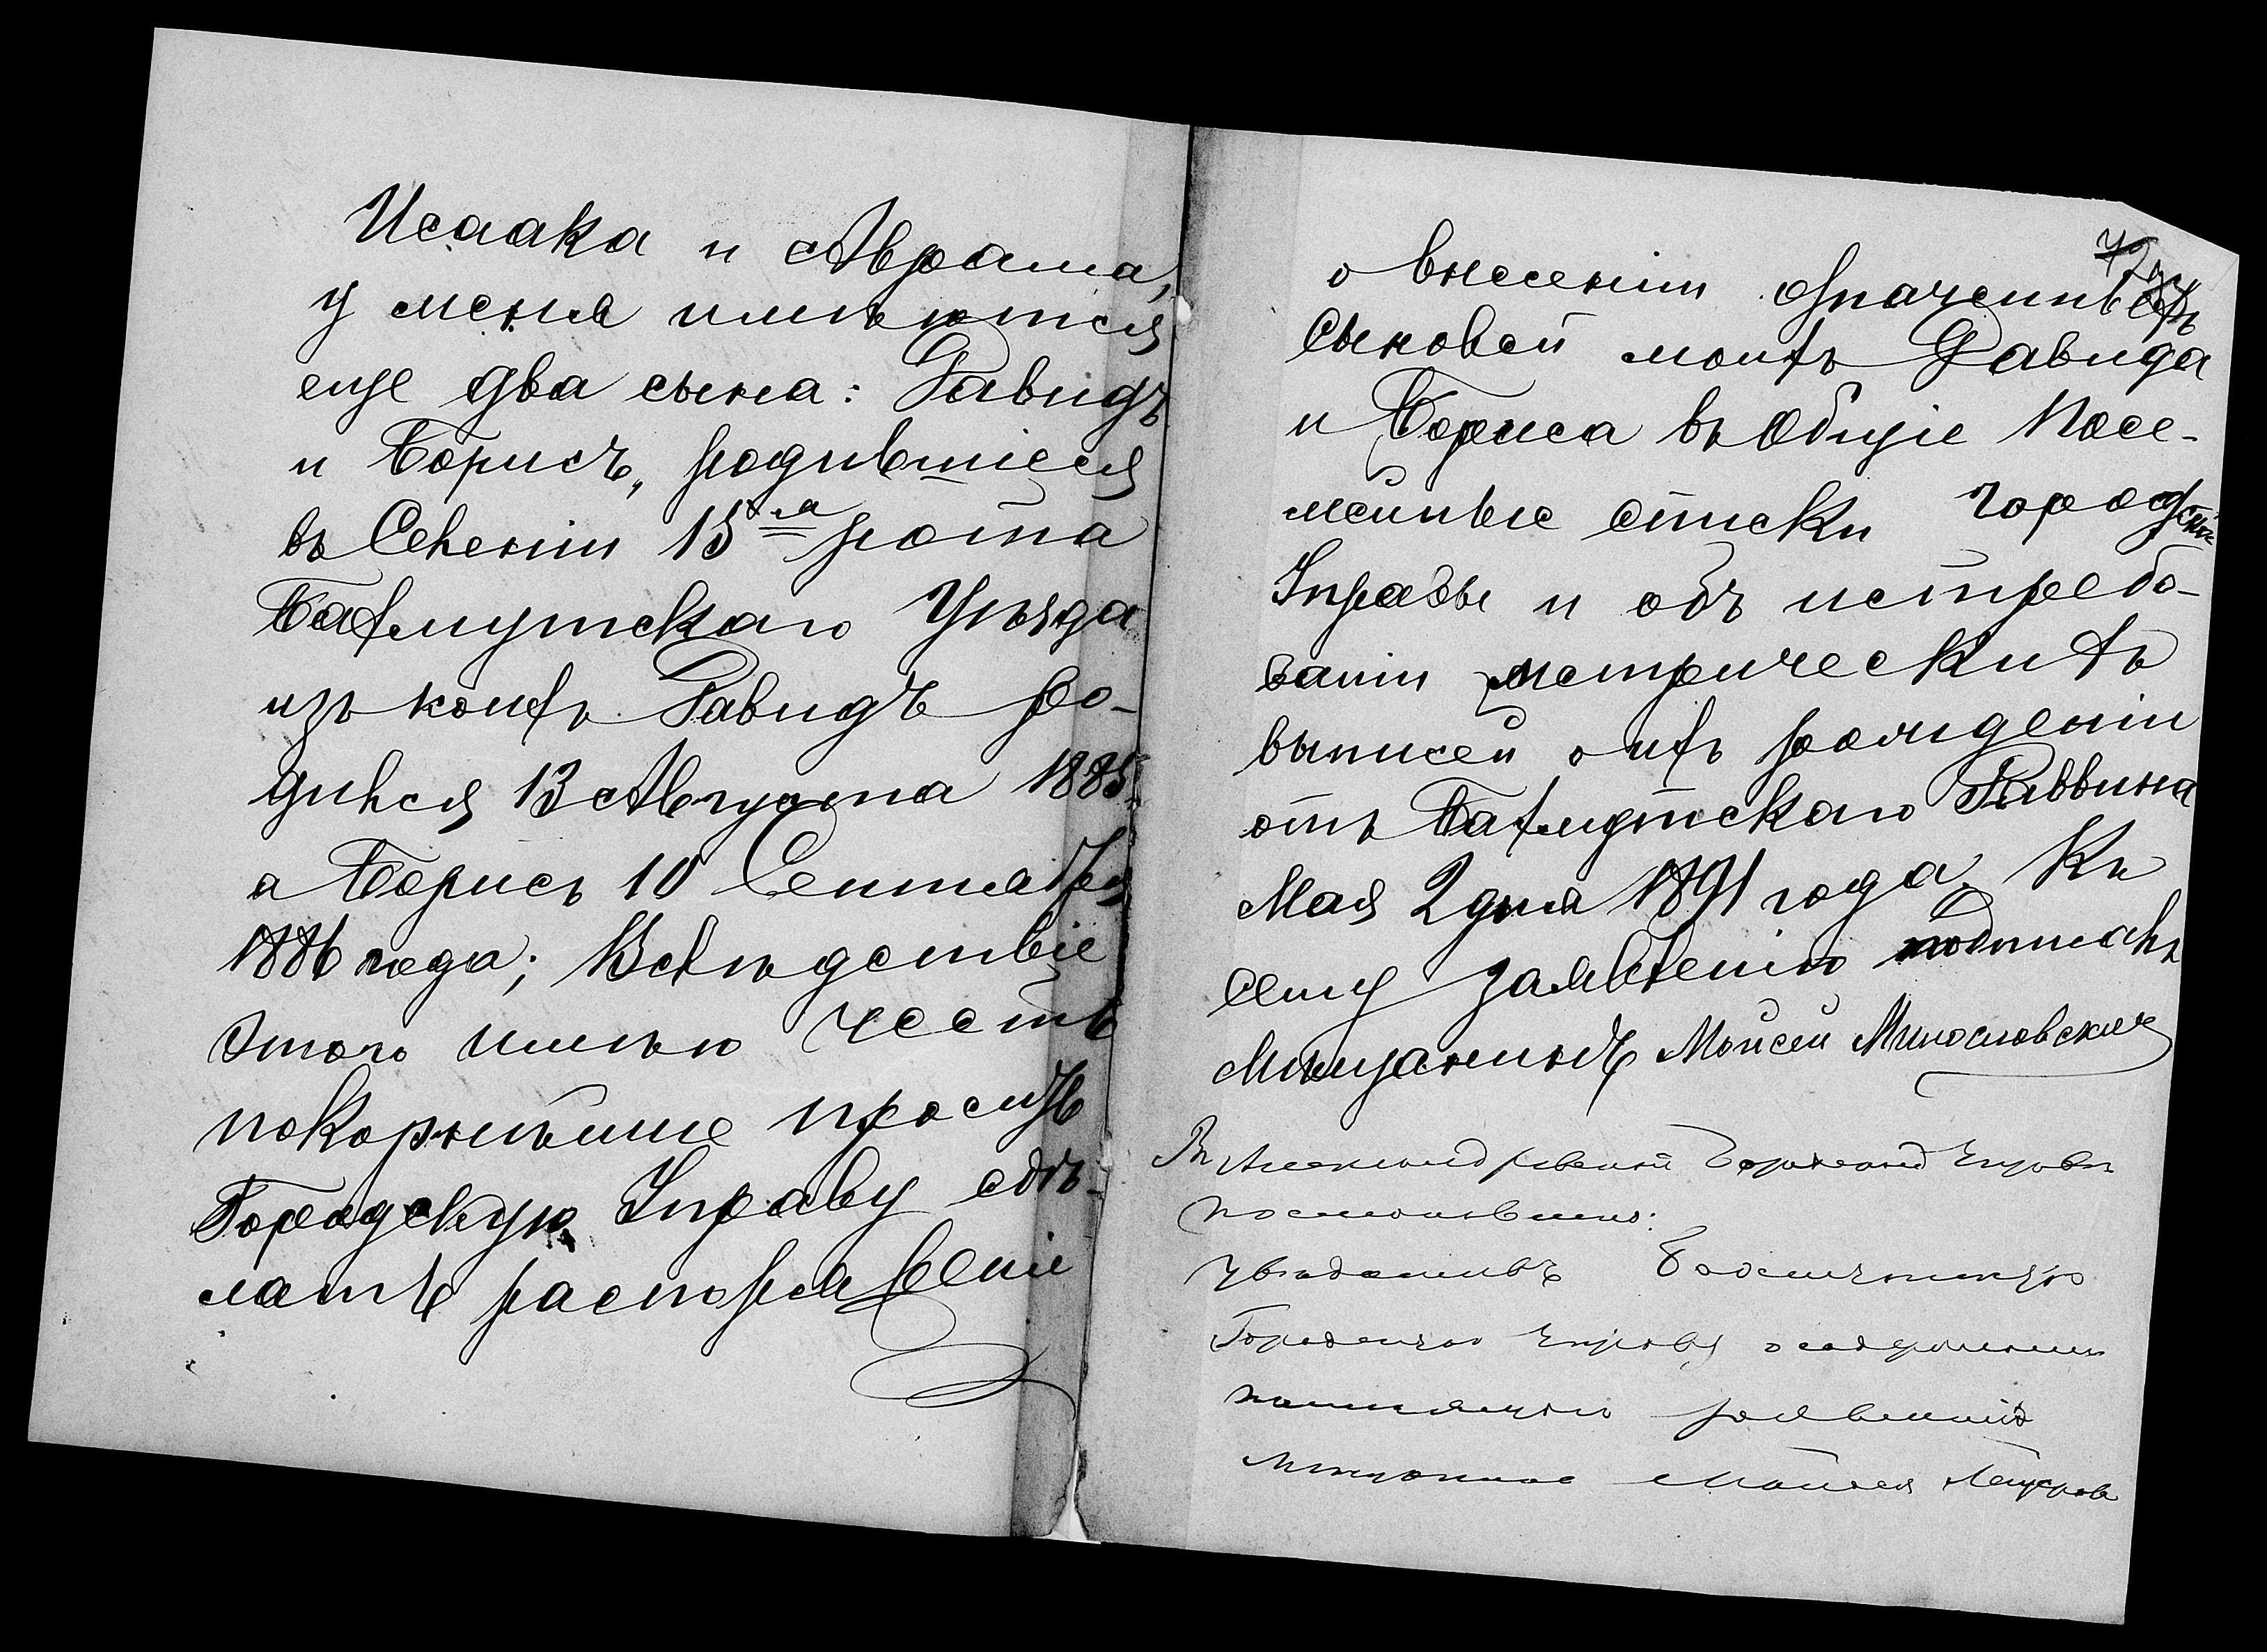 Исаака и Аврама,
у меня имѣются
еще два сына: Давидъ
и Борисъ, родившіеся
въ Селеніи 15ля рота
Бахмутскаго Уѣзда
изъ коихъ Давидъ ро-
дился 13 Августа 1885
а Борисъ 10 Сентября
1886 года; Вслѣдствіе
этого имѣю честь
покорнѣйше просить
Городскую Управу сдѣ-
лать распоряженіе
о внесеніи означенныхъ
Сыновей моихъ Давида
и Бориса въ Общіе Посе-
мейные списки Городской
Управы и объ истребо-
ваніи метрическихъ
выписей о ихъ рожденіи
отъ Бахмутскаго Раввина
Мая 2 дня 1891 года. Къ
сему заявленію подписалъ
Мѣщанинъ Моисей
Въ Александровской Городской Управѣ
постановлено:
увѣдомивъ
Городскую Управу о содержаніи
настоящаго заявленія
мѣщанина Моисея